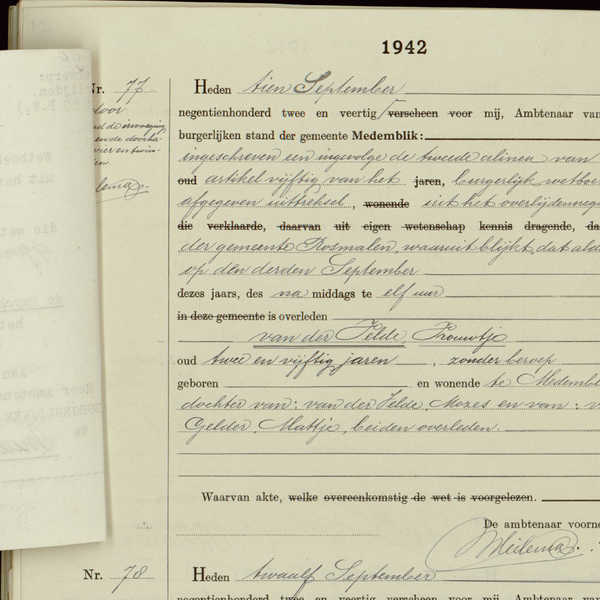 1942
Nr. 77
Heden tien September
negentienhonderd twee en veertig verscheen voor mij, Ambtenaar van
burgerlijken stand der gemeente Medemblik:
ingeschreven een ingevolge de tweede alinea van
oud artikel vijftig van het jaren, burgerlijk wetboe
afgegeven uittreksel, wonende uit het overlijdensregi
die verklaarde, daarvan uit eigen wetenschap kennis dragende, da
der gemeente Rosmalen, waaruit blijkt, dat alda
op den derden September
dezes jaars, des na middags te elf uur
in deze gemeente is overleden
van der Velde Vrouwtje
oud twee en vijftig jaren, zonder beroep
geboren en wonende te Medembl
dochter van: van der Velde, Mozes en van: v
Gelder, Mattje, beiden overleden.
Waarvan akte, welke overeenkomstig de wet is voorgelezen.
De ambtenaar voorno
Nr. 78
Heden twaalf September
negentienhonderd twee en veertig verscheen voor mij, Ambtenaar van